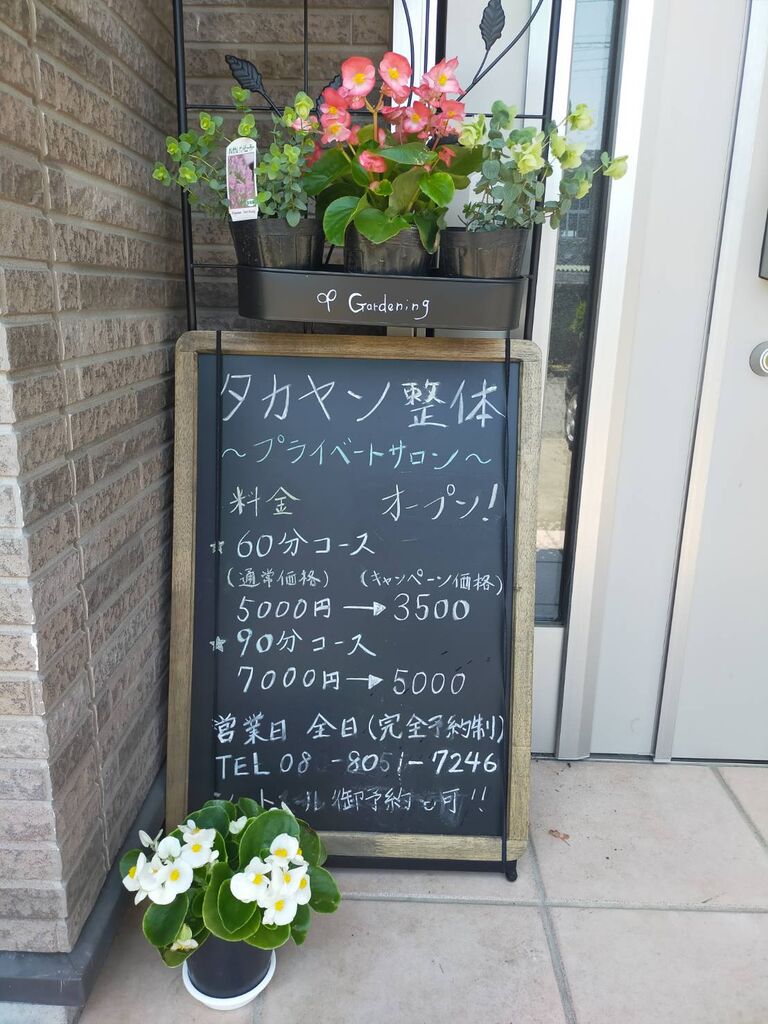 Gardening
タカヤン整体
～プライベートサロン～
料金 オープン!
☆60分コース
(通常価格) (キャンペーン価格)
5000円→3500
☆90分コース
7000円→5000
営業日 全日(完全予約制)
TEL 08 -8051-7246
御予約も可!!